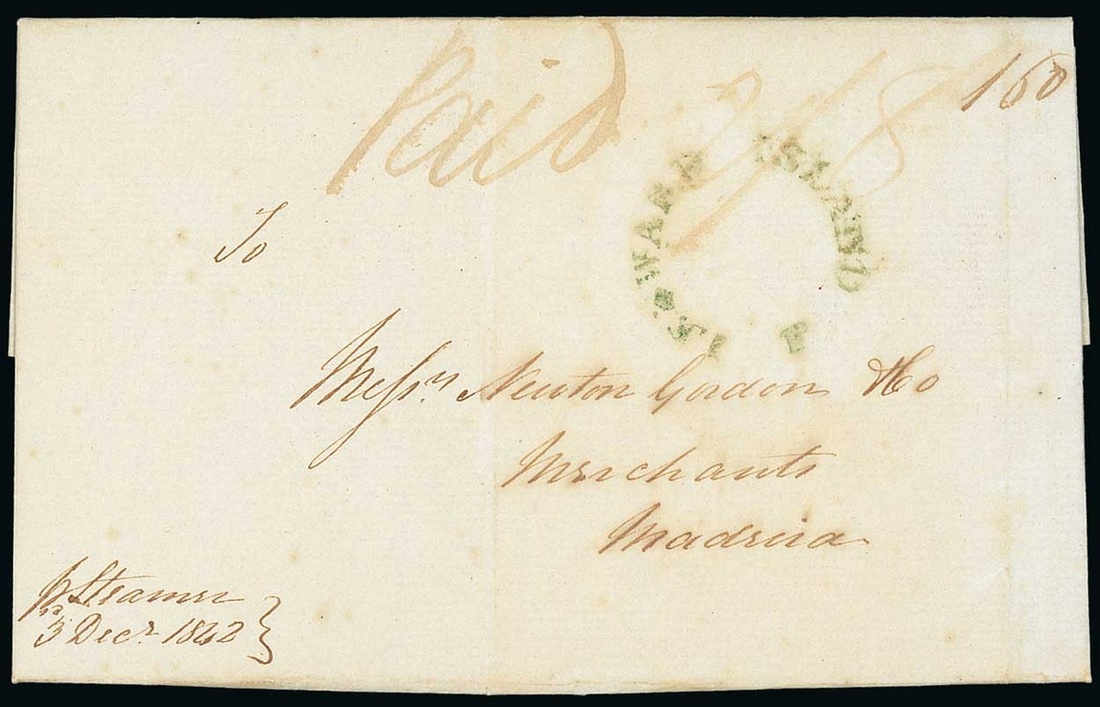 Paid 2/8
160
ISLAND
To
Messrs Newton Gordon & Co
Merchants
Madeira
pr Steamer
3 Decr 1842